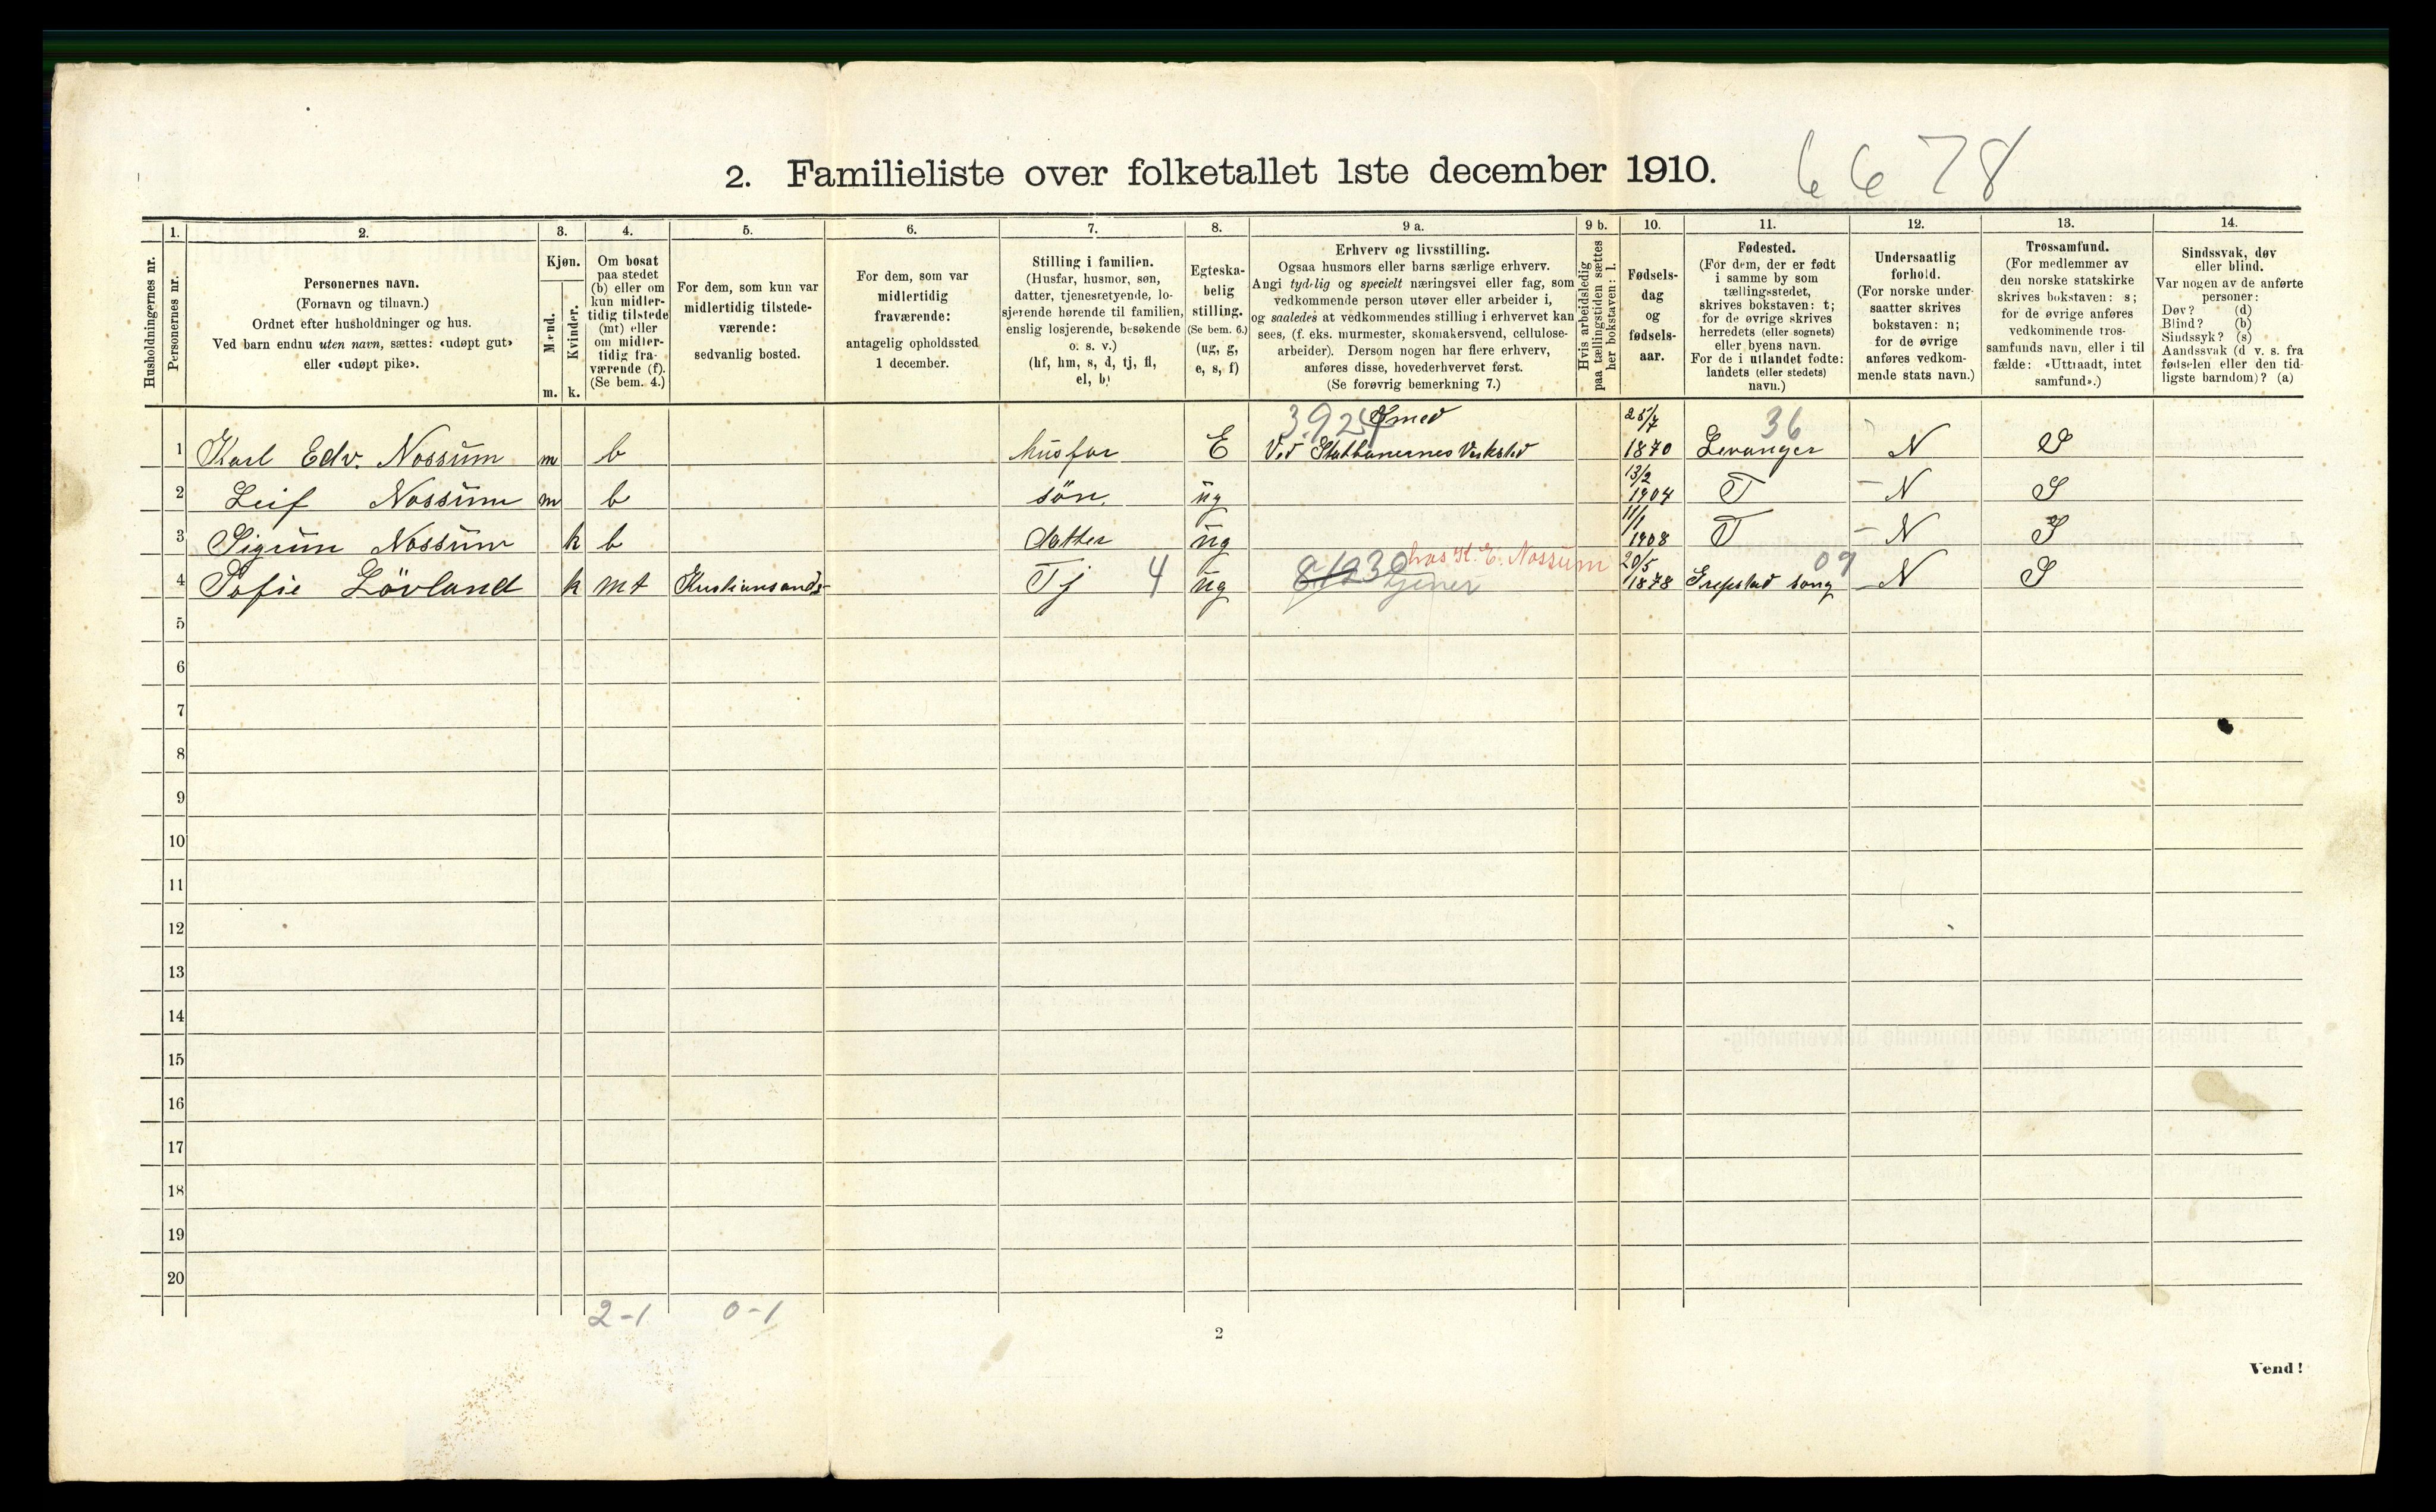 2. Familieliste over folketallet 1ste december 1910.
6678
Husholdningernes nr.
1.
Personernes nr.
2.
Personernes navn.
(Fornavn og tilnavn.)
Ordnet efter husholdninger og hus.
Ved barn endnu uten navn, sættes: «udøpt gut»
eller «udøpt pike».
3.
Kjøn.
Mænd.
Kvinder.
m. k.
4.
Om bosat
paa stedet
(b) eller om
kun midler-
tidig tilstede
(mt) eller
om midler-
tidig fra-
værende (f).
(Se bem. 4.)
5.
For dem, som kun var
midlertidig tilstede-
værende:
sedvanlig bosted.
6.
For dem, som var
midlertidig
fraværende:
antagelig opholdssted
1 december.
7.
Stilling i familien.
(Husfar, husmor, søn,
datter, tjenestetyende, lo-
sjerende hørende til familien,
enslig losjerende, besøkende
o. s. v.)
(hf, hm, s, d, tj, fl,
el, b)
8.
Egteska-
belig
stilling.
(Se bem. 6.)
(ug, g,
e, s, f)
9 a.
Erhverv og livsstilling.
Ogsaa husmors eller barns særlige erhverv.
Angi tydelig og specielt næringsvei eller fag, som
vedkommende person utøver eller arbeider i,
og saaledes at vedkommendes stilling i erhvervet kan
sees, (f. eks. murmester, skomakersvend, cellulose-
arbeider). Dersom nogen har flere erhverv,
anføres disse, hovederhvervet først.
(Se forøvrig bemerkning 7.)
9 b.
Hvis arbeidsledig
paa tællingstiden sættes
her bokstaven: l.
10.
Fødsels-
dag
og
fødsels-
aar.
11.
Fødested.
(For dem, der er født
i samme by som
tællingsstedet,
skrives bokstaven: t;
for de øvrige skrives
herredets (eller sognets)
eller byens navn.
For de i utlandet fødte:
landets (eller stedets)
navn.)
12.
Undersaatlig
forhold.
(For norske under-
saatter skrives
bokstaven: n;
for de øvrige
anføres vedkom-
mende stats navn.)
13.
Trossamfund.
(For medlemmer av
den norske statskirke
skrives bokstaven: s;
for de øvrige anføres
vedkommende tros-
samfunds navn, eller i til
fælde: «Uttraadt, intet
samfund».)
14.
Sindssvak, døv
eller blind.
Var nogen av de anførte
personer:
Døv? (d)
Blind? (b)
Sindssyk? (s)
Aandssvak (d v. s. fra
fødselen eller den tid-
ligste barndom)? (a)
3.924 Smed 25/7 36
1 Karl Edv. Nossum m b husfar E Ved Statbanernes Verksted 1870 Levanger N S
2 Leif Nossum m b søn ug 13/2 1904 T N S
3 Sigrun Nossum k b datter ug 11/1 1908 T N S
hos K. E. Nossum 09
4 Sofie Lövland k mt Kristiansand S Tj 4 ug tjener 20/5 1878 Grepstad song N S
5
6
7
8
9
10
11
12
13
14
15
16
17
18
19
20
2-1 0-1
2
Vend!